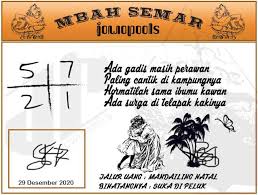 MBAH SEMAR
jomopools
5 7
2 1
Ada gadis masih perawan
Paling cantik di kampungnya
Hyrmatilah sama ibumu kawan
Ada surga di telapak kakinya
29 Desember 2020
JALUR UANG : MANDAILING NATAL
BINATANGNYA : SUKA DI PELUK